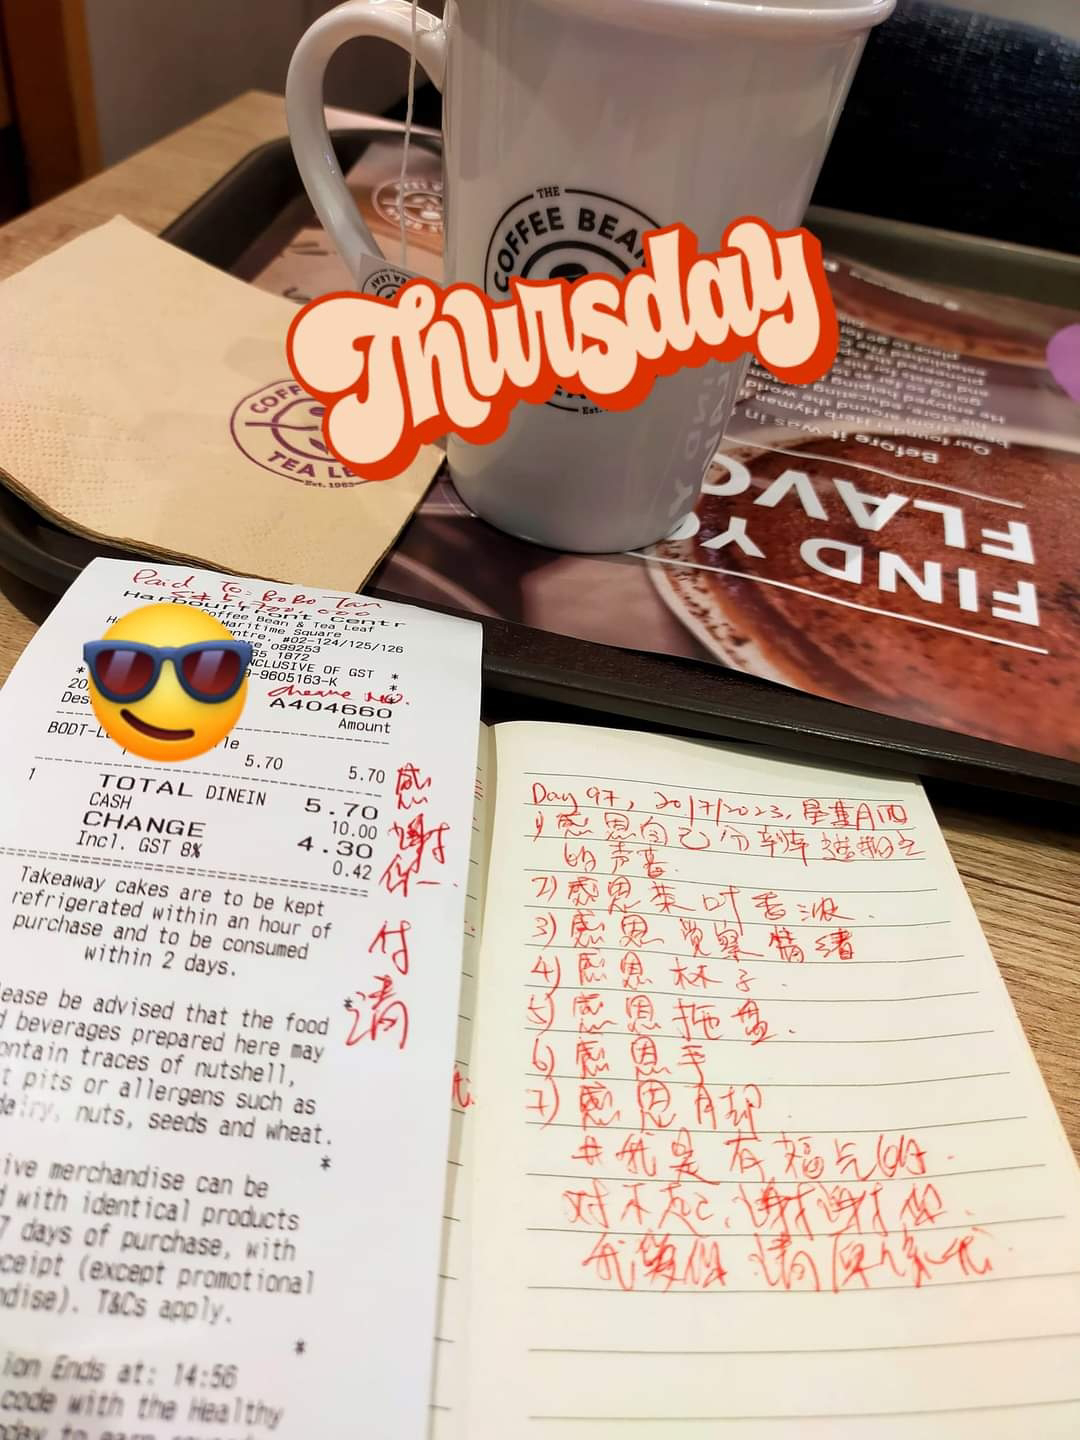 THE
COFFEE BEAN
Est.
Thursday
COFFEE
TEA LEAF
Est. 1963
FIND YO
FLAVO
Before it was in
Our founder Hyman
Paid To: BoBo Tan
HarbourFront Centr
Coffee Bean & Tea Leaf
Maritime Square
entre, #02-124/125/126
099253
65 1872
NCLUSIVE OF GST *
9-9605163-K *
cheque No.
20
A404660
Des
Amount
BODT-L
5.70 5.70
1 TOTAL DINEIN 5.70
CASH 10.00
CHANGE 4.30
Incl. GST 8% 0.42
Takeaway cakes are to be kept
refrigerated within an hour of
purchase and to be consumed
within 2 days.
*
lease be advised that the food
d beverages prepared here may
ontain traces of nutshell,
t pits or allergens such as
dairy, nuts, seeds and wheat.
*
ive merchandise can be
d with identical products
7 days of purchase, with
ceipt (except promotional
ndise). T&Cs apply.
*
ion Ends at: 14:56
code with the Healthy
感
谢
你
付
清
Day 97, 20/7/2023, 星期四
1) 感恩自己分享
的声音.
2) 感恩茶叶香浓.
3) 感恩觉察情绪
4) 感恩林子.
5) 感恩拖盘.
6) 感恩手
7) 感恩月却.
# 我是有福气的.
对不起, 谢谢你.
我爱你 请原谅我